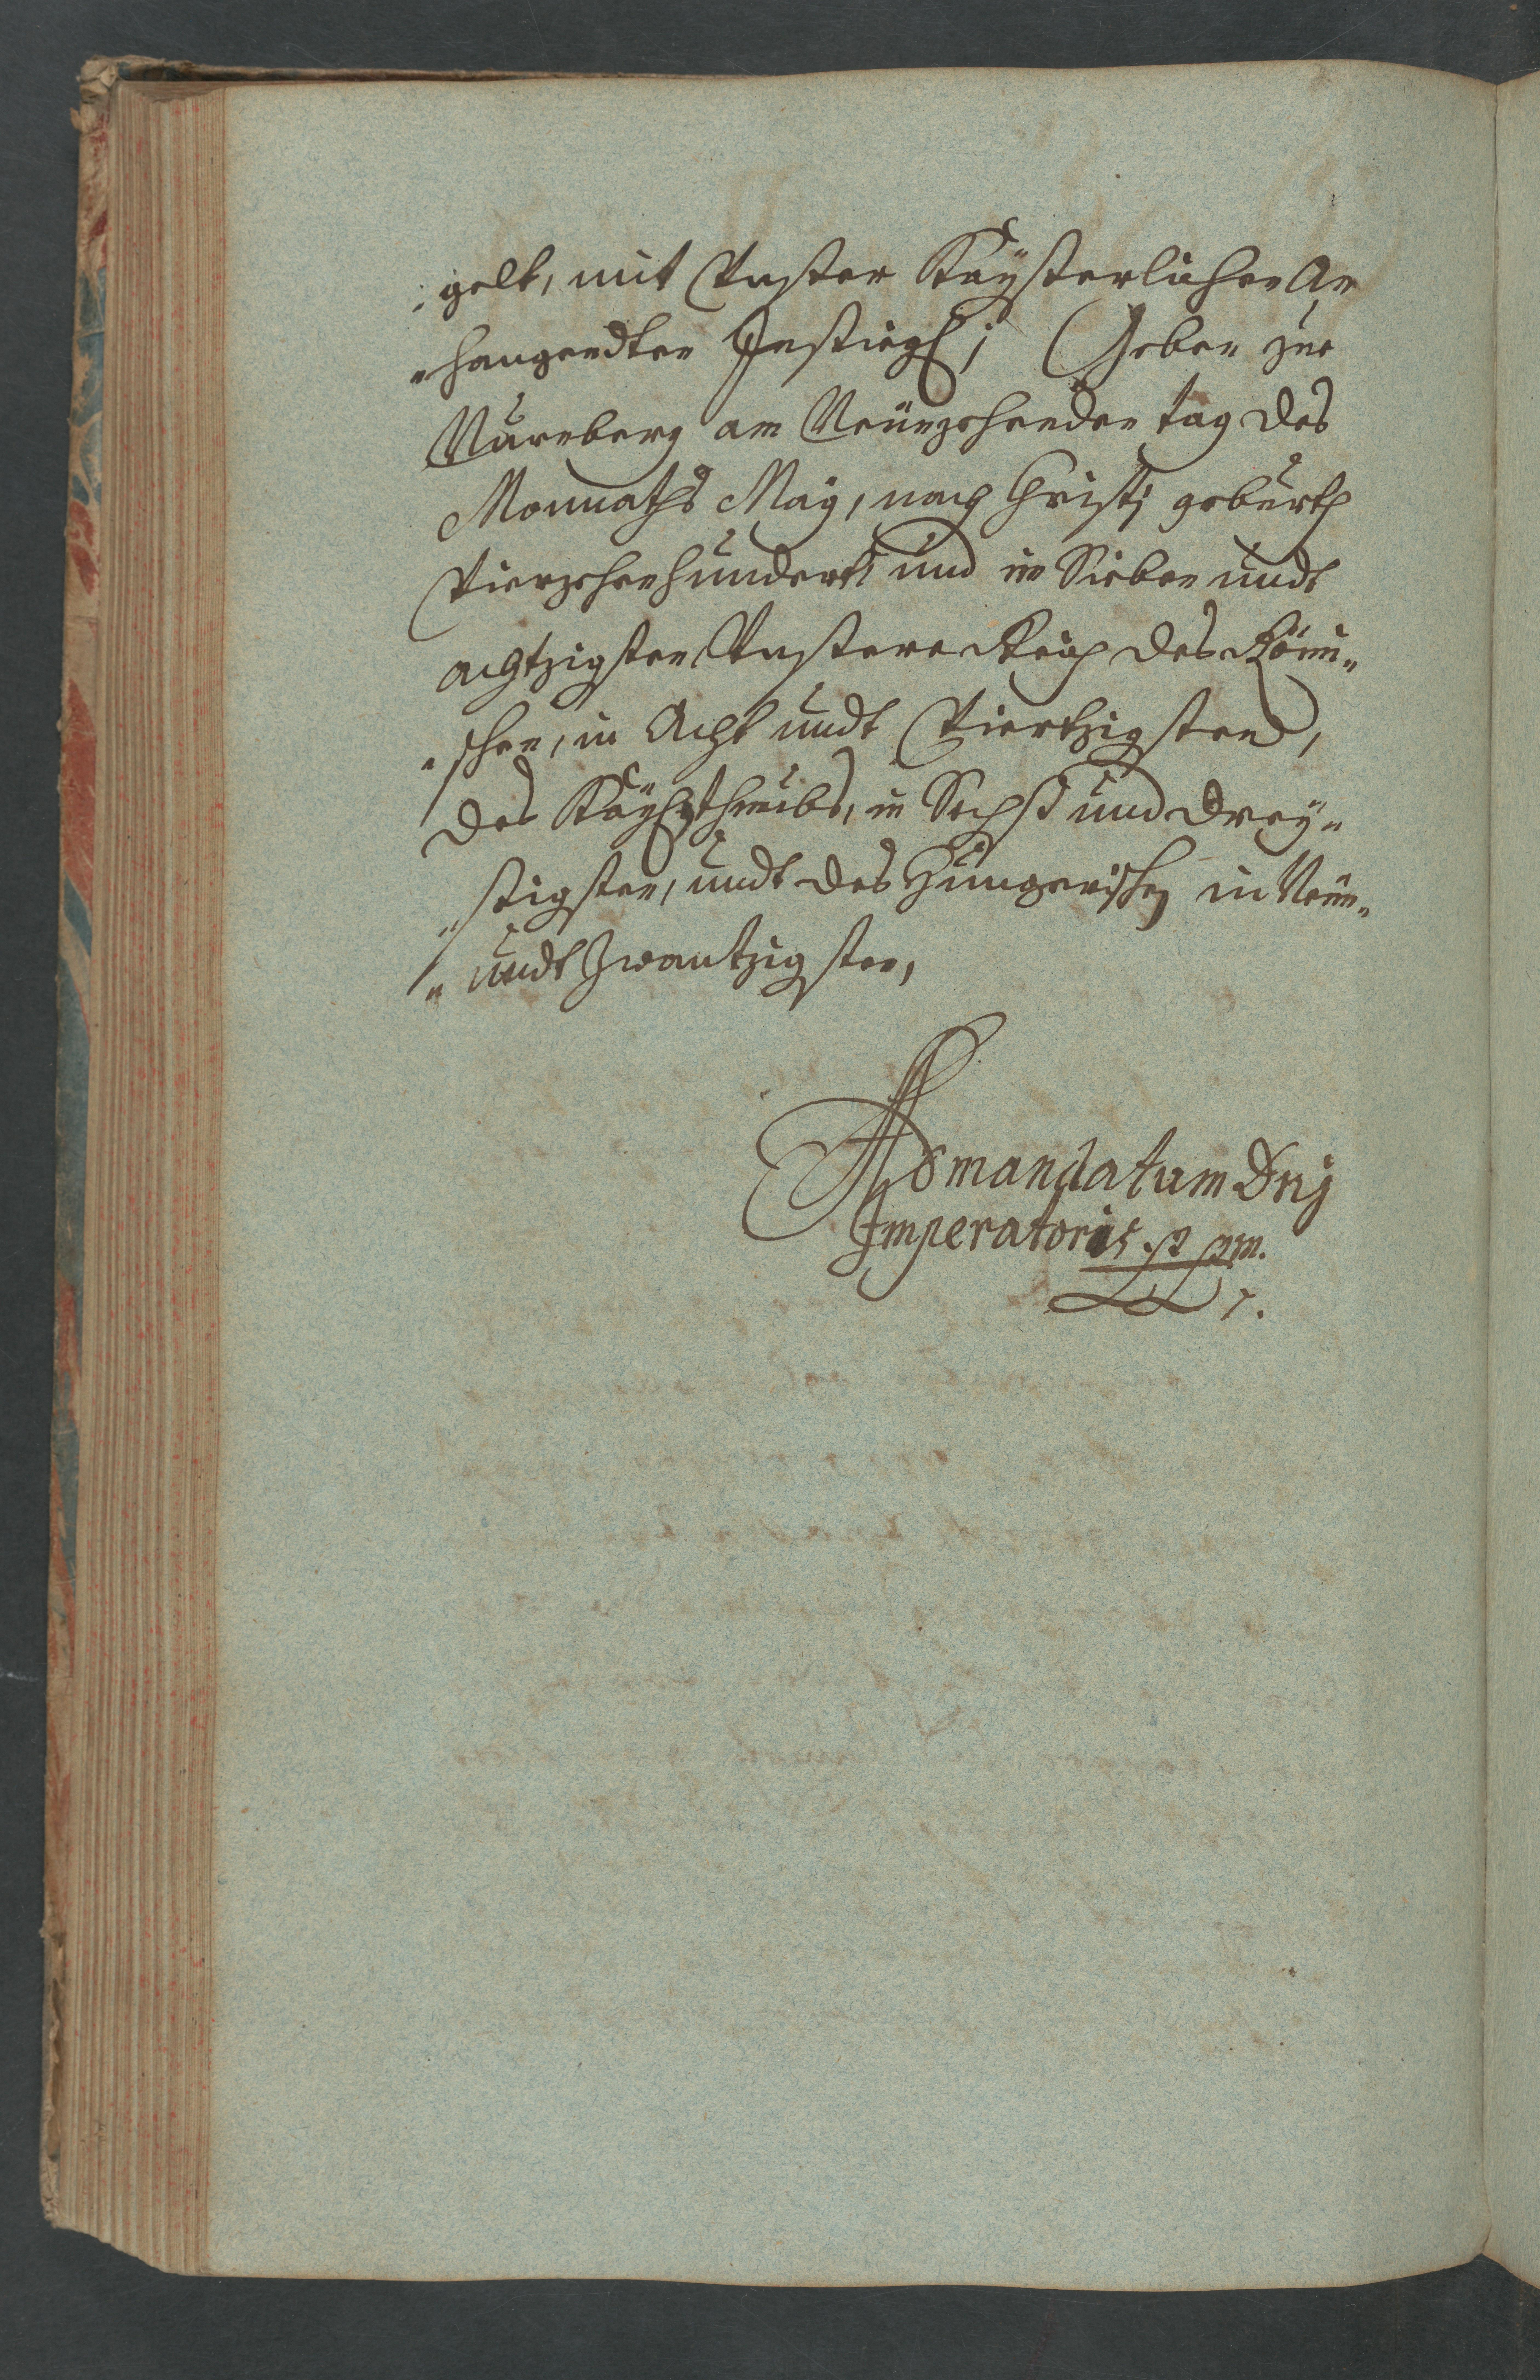 gelt, mit Vnßer Kaÿßerlichen An
"hangendten Insiegl; Geben zue
Nürnberg am Neünzehenden tag des
Monnaths Maÿ, nach Christj gebürth
Vierzehenhundert und im Sieben undt
achtzigsten Vnßere Reich des Römi"
"schen, in Acht undt Viertzigsten,
des Kaÿßerthumbs, in Sechß und Dreÿ"
"ßigsten, undt des Hungerischen in Neün"
"undt Zwantzigsten,
Ad mandatum Dnj
Imperatoris p pm.